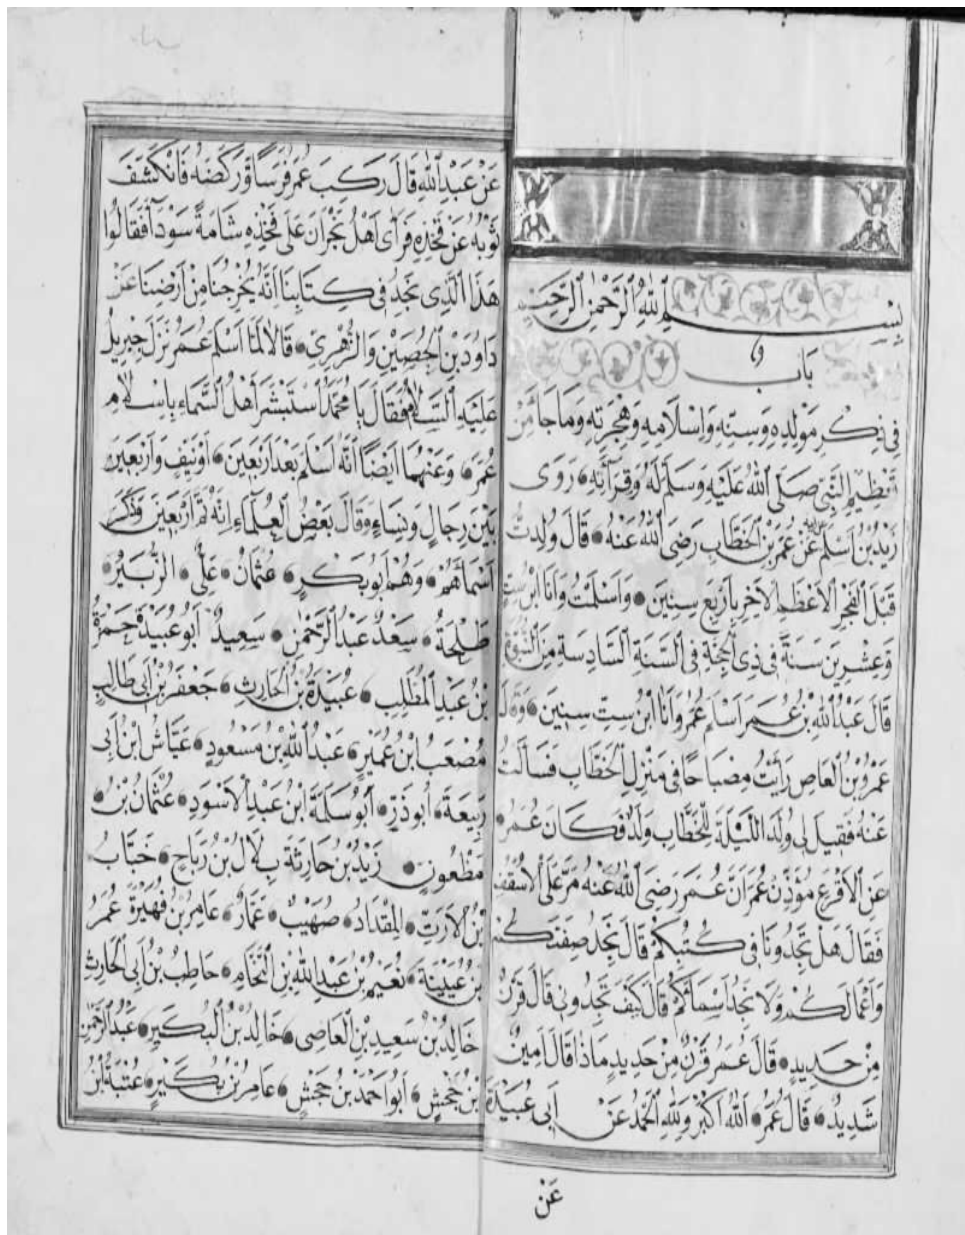 بِسْمِ اللهِ الرَّحْمٰنِ الرَّحِيمِ
بَابٌ
فِي ذِكْرِ مَوْلِدِهِ وَسِنِّهِ وَاِسْلَامِهِ وَهِجْرَتِهِ وَمَا جَا مِنْ
تَعْظِيمِ النَّبِيِّ صَلَى اللهُ عَلَيْهِ وَسَلَّمَ لَهُ وَقِرَآتِهِ رَوَى
زَيْدُ بْنُ اَسْلَمَ عَنْ عُمَرَ بْنِ الْخَطَّابِ رَضِيَ اللهُ عَنْهُ قَالَ وُلِدتُ
قَبْلَ الْفَجْرِ الْاَعْظَمِ الْآخِرِ بِاَرْبَعِ سِنِينَ وَاَسْلَمْتُ وَاَنَا ابْنُ سِتٍّ
وَعِشْرِينَ سَنَةً فِي ذِي الْحِجَّةِ فِي السَّنَةِ السَّادِسَةِ مِنَ النُّبُوَّةِ
قَالَ عَبْدُ اللهِ بْنُ عُمَرَ اَسْلَمَ عُمَرُ وَاَنَا ابْنُ سِتِّ سِنِينَ وَقَالَ
عَمْرُو بْنُ الْعَاصِ رَاَيْتُ مِصْبَاحًا فِي مَنْزِلِ الْخَطَّابِ فَسَاَلْتُ
عَنْهُ فَقِيلَ لِي وُلِدَ اللَّيْلَةَ لِلْخَطَّابِ وَلَدٌ فَكَانَ عُمَرُ
عَنِ الْاَقْرَعِ مُؤَذِّنِ عُمَرَ اَنَّ عُمَرَ رَضِيَ اللهُ عَنْهُ مَرَّ عَلَى الْاُسْقُفِ
فَقَالَ هَلْ تَجِدُونَا فِي كُتُبِكُمْ قَالَ نَجِدُ صِفَتَكُمْ
وَاَعْمَالَكُمْ وَلَا نَجِدُ اَسْمَآئَكُمْ قَالَ كَيْفَ تَجِدُونِي قَالَ قَرْنٌ
مِنْ حَدِيدٍ قَالَ عُمَرُ قَرْنٌ مِنْ حَدِيدٍ مَاذَا قَالَ اَمِينٌ
شَدِيدٌ قَالَ عُمَرُ اَللهُ اَكْبَرُ وَلِلهِ الْحَمْدُ عَنْ اَبِي عُبَيْدَةَ
عَنْ
عَنْ عَبْدِ اللهِ قَالَ رَكِبَ عُمَرُ فَرَسًا وَرَكَضَهُ فَانْكَشَفَ
ثَوْبُهُ عَنْ فَخْذِهِ فَرَاٰى اَهْلُ نَجْرَانَ عَلَى فَخْذِهِ شَامَةً سَوْدَآ فَقَالُوا
هَذَا الَّذِي نَجِدُ فِي كِتَابِنَا اَنَّهُ يُخْرِجُنَا مِنْ اَرْضِنَا عَنْ
دَاوُدَ بْنِ الْحُصَيْنِ وَالزُّهْرِيِّ قَالَا لَمَّا اَسْلَمَ عُمَرُ نَزَلَ جِبْرِيلُ
عَلَيْهِ السَّلَامُ فَقَالَ يَا مُحَمَّدُ اسْتَبْشَرَ اَهْلُ السَّمَاءِ بِاِسْلَامِ
عُمَرَ وَعَنْهُمَا اَيْضًا اَنَّهُ اَسْلَمَ بَعْدَ اَرْبَعِينَ اَوْ نَيِّفٍ وَاَرْبَعِينَ
بَيْنَ رِجَالٍ وَنِسَاءٍ وَقَالَ بَعْضُ الْعُلَمَآءِ اِنَّهُ تَمَّ اَرْبَعِينَ وَذَكَرَ
اَسْمَاءَهُمْ وَهُمْ اَبُو بَكْرٍ عُثْمَانُ عَلِيٌّ الزُّبَيْرُ
طَلْحَةُ سَعْدٌ عَبْدُ الرَّحْمٰنِ سَعِيدٌ اَبُو عُبَيْدَةَ حَمْزَةُ
بْنُ عَبْدِ الْمُطَّلِبِ عُبَيْدَةُ بْنُ الْحَارِثِ جَعْفَرُ بْنُ اَبِي طَالِبٍ
مُصْعَبُ ابْنُ عُمَيْرٍ عَبْدُ اللهِ بْنُ مَسْعُودٍ عَيَّاشُ ابْنُ اَبِي
رَبِيعَةَ اَبُو ذَرٍّ اَبُو سَلَمَةَ ابْنُ عَبْدِ الْاَسْوَدِ عُثْمَانُ بْنُ
مَظْعُونٍ زَيْدُ بْنُ حَارِثَةَ بِلَالُ بْنُ رَبَاحٍ خَبَّابُ
بْنُ الْاَرَتِّ الْمِقْدَادُ صُهَيْبٌ عَمَّارٌ عَامِرُ بْنُ فُهَيْرَةَ عُمَرُ
بْنُ عُيَيْنَةَ نُعَيْمُ بْنُ عَبْدِ اللهِ بْنِ النَّحَّامِ حَاطِبُ بْنُ اَبِي الْحَارِثِ
خَالِدُ بْنُ سَعِيدِ بْنِ الْعَاصِي خَالِدُ بْنُ الْبُكَيْرِ عَبْدُ الرَّحْمٰنِ
بْنُ جَحْشٍ اَبُو اَحْمَدَ بْنُ جَحْشٍ عَامِرُ بْنُ بُكَيْرٍ عُتْبَةُ بْنُ